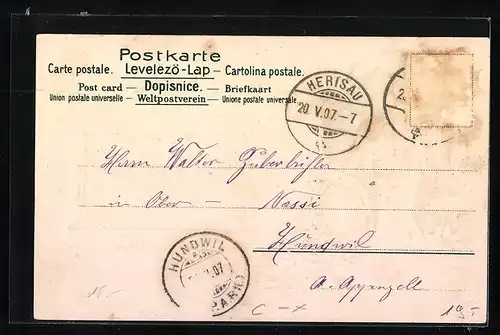 Postkarte
Carte postale. Levelező-Lap — Cartolina postale.
Post card — Dopisnice. — Briefkaart
Union postale universelle — Weltpostverein — Unione postale universale
HERISAU
20. V. 07. — 7
Herrn Walter Zuberbühler
in Ober — Nässi
Hundwil
A. Appenzell
HUNDWIL
V. 07
C — x
19.-